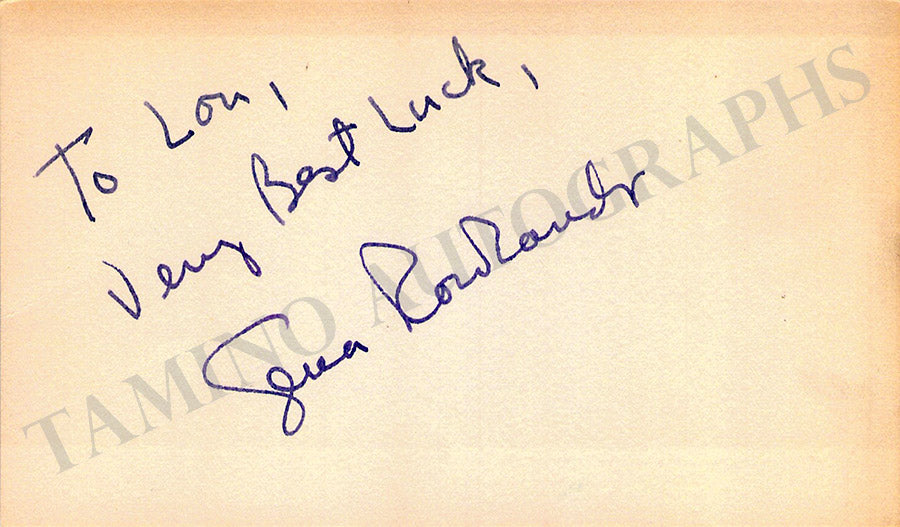 To Lou,
Very Best Luck,
Gena Rowlands
TAMINO AUTOGRAPHS